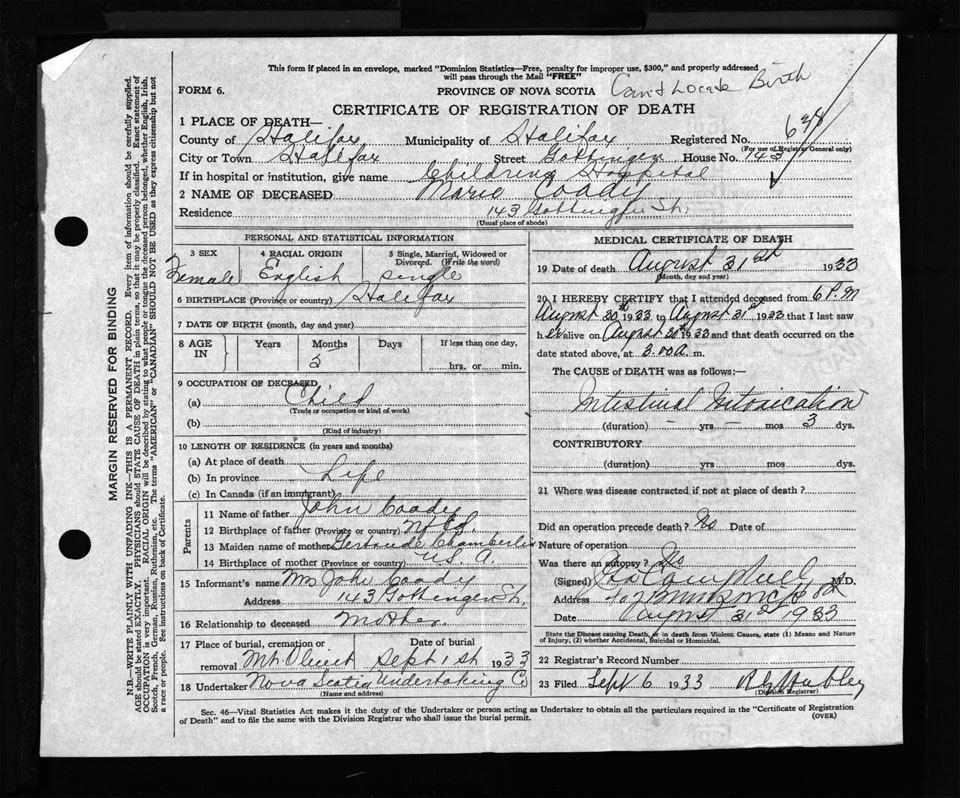 This form if placed in an envelope, marked "Dominion Statistics—Free, penalty for improper use, $300," and properly addressed
will pass through the Mail "FREE"
FORM 6.
PROVINCE OF NOVA SCOTIA
Can't Locate Birth
CERTIFICATE OF REGISTRATION OF DEATH
1 PLACE OF DEATH—
County of Halifax Municipality of Halifax Registered No. 698
(For use of Registrar General only)
City or Town Halifax Street Gottingen House No. 143
If in hospital or institution, give name Childrens Hospital
2 NAME OF DECEASED Marie Coady
Residence 143 Gottingen St.
(Usual place of abode)
PERSONAL AND STATISTICAL INFORMATION
3 SEX Female
4 RACIAL ORIGIN English
5 Single, Married, Widowed or Divorced. (Write the word) single
6 BIRTHPLACE (Province or country) Halifax
7 DATE OF BIRTH (month, day and year)
8 AGE IN Years Months 5 Days If less than one day,
hrs. or min.
9 OCCUPATION OF DECEASED
(a) Child
(Trade or occupation or kind of work)
(b)
(Kind of industry)
10 LENGTH OF RESIDENCE (in years and months)
(a) At place of death
(b) In province Life
(c) In Canada (if an immigrant)
Parents
11 Name of father John Coady
12 Birthplace of father (Province or country) Nfld.
13 Maiden name of mother Gertrude Chamberlin
14 Birthplace of mother (Province or country) U.S.A.
15 Informant's name Mrs John Coady
Address 143 Gottingen St.
16 Relationship to deceased Mother
17 Place of burial, cremation or removal Mt. Olivet
Date of burial Sept 1st 1933
18 Undertaker Nova Scotia Undertaking Co
(Name and address)
MEDICAL CERTIFICATE OF DEATH
19 Date of death August 31st 1933
(Month, day and year)
20 I HEREBY CERTIFY that I attended deceased from 6 P.M
August 30th 1933 to August 31st 1933 that I last saw
her alive on August 30th 1933 and that death occurred on the
date stated above, at 3.00 a. m.
The CAUSE of DEATH was as follows:—
Intestinal Intoxication
(duration) – yrs – mos 3 dys.
CONTRIBUTORY
(duration) yrs mos dys.
21 Where was disease contracted if not at place of death?
Did an operation precede death? No Date of
Nature of operation
Was there an autopsy? No
(Signed) Campbell M.D.
Address
Date August 31st 1933
State the Disease causing Death, or in death from Violent Causes, state (1) Means and Nature
of Injury, (2) whether Accidental, Suicidal or Homicidal.
22 Registrar's Record Number
23 Filed Sept 6 1933
(Division Registrar)
Sec. 46—Vital Statistics Act makes it the duty of the Undertaker or person acting as Undertaker to obtain all the particulars required in the "Certificate of Registration
of Death" and to file the same with the Division Registrar who shall issue the burial permit.
(OVER)
MARGIN RESERVED FOR BINDING
N.B.—WRITE PLAINLY WITH UNFADING INK—THIS IS A PERMANENT RECORD. Every item of information should be carefully supplied.
AGE should be stated EXACTLY. PHYSICIANS should STATE CAUSE OF DEATH in plain terms, so that it may be properly classified. Exact statement of
OCCUPATION is very important. RACIAL ORIGIN will be described by stating to what people or tongue the deceased person belonged, whether English, Irish,
Scotch, French, German, Russian, Ruthenian, etc. The terms "AMERICAN" or "CANADIAN" SHOULD NOT BE USED as they express citizenship but not
a race or people. See instructions on back of Certificate.